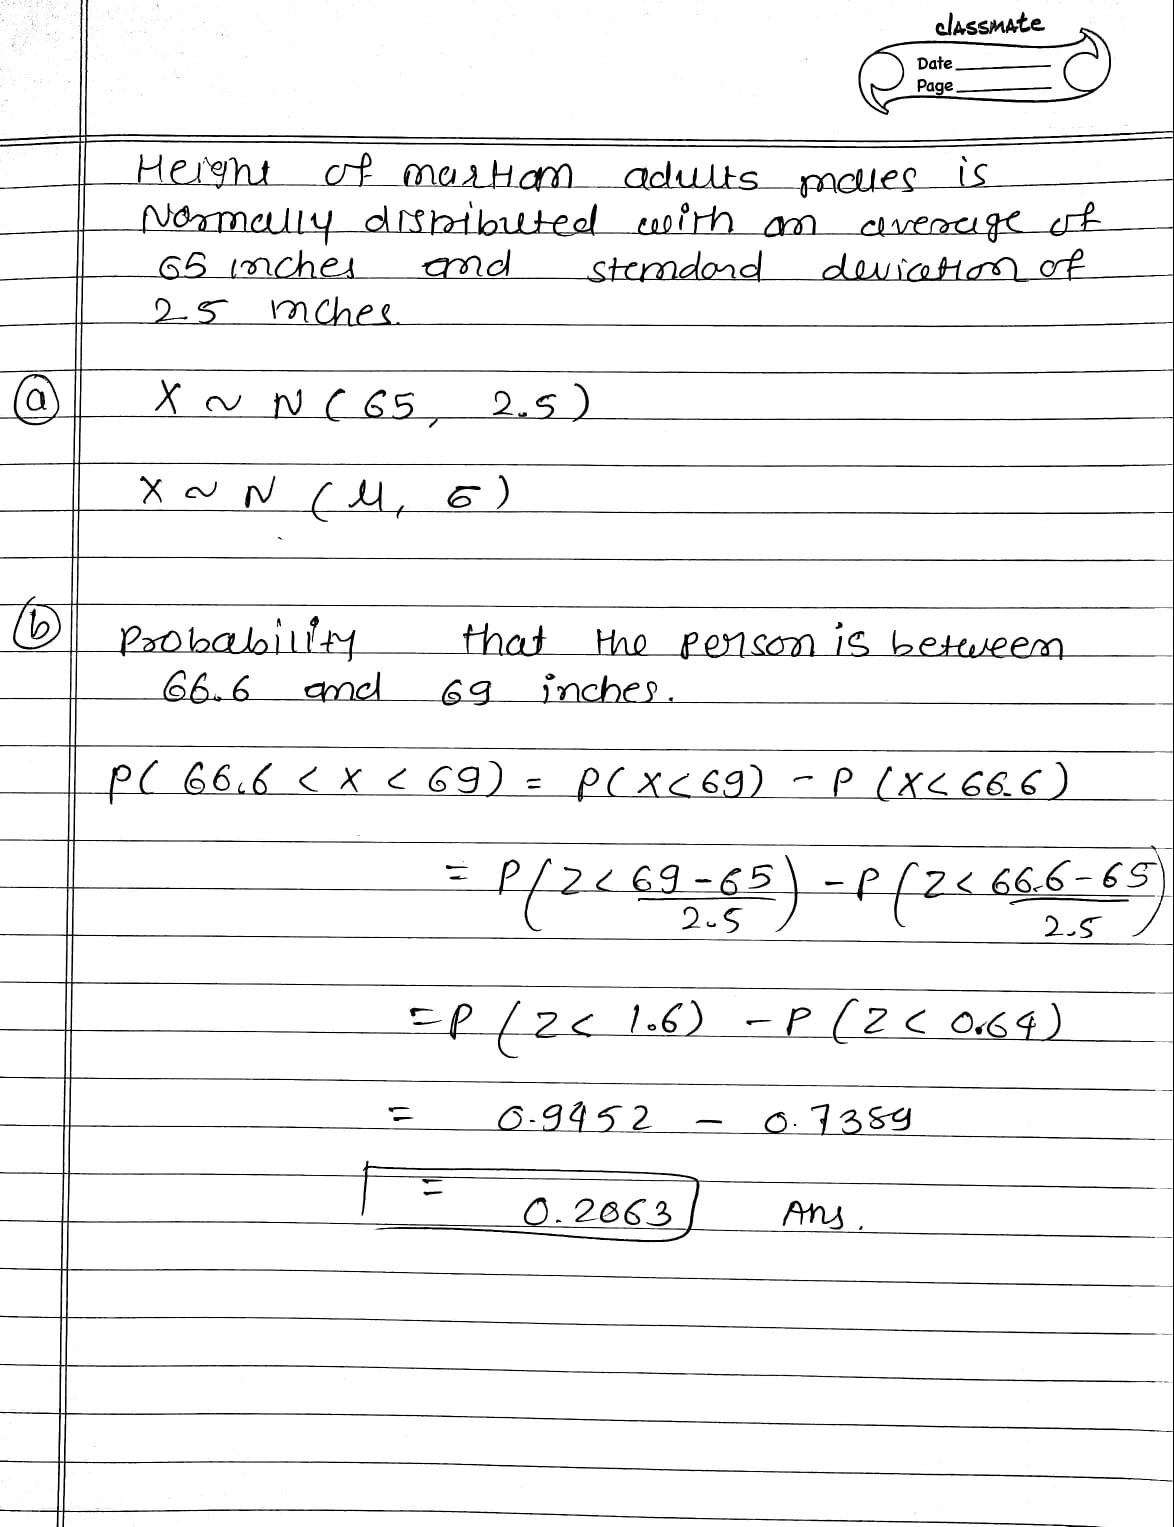 classmate
Date
Page
Height of martian adults males is
Normally distributed with an average of
65 inches and standard deviation of
2.5 inches.
(a) X ~ N (65, 2.5)
X ~ N (μ, σ)
(b) Probability that the person is between
66.6 and 69 inches.
P( 66.6 < X < 69) = P(X<69) - P (X<66.6)
= P(Z< 69-65/2.5) - P(Z< 66.6-65/2.5)
= P (Z< 1.6) - P (Z< 0.64)
= 0.9452 - 0.7389
= 0.2063 Ans.